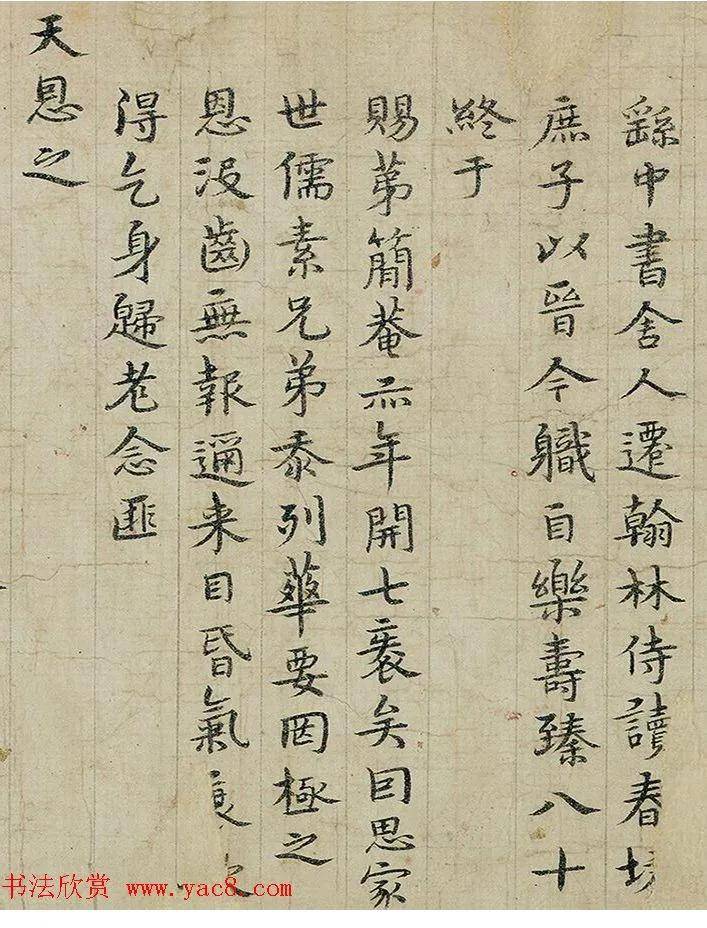 繇中書舍人遷翰林侍讀春坊
庶子以晉今職自樂壽臻八十
終于
賜苐簡菴亦年開七袠矣回思家
世儒素兄弟忝列華要罔極之
恩没齒無報邇来目昏氣衰
得乞身歸老念匪
天恩之
书法欣赏 www.yac8.com